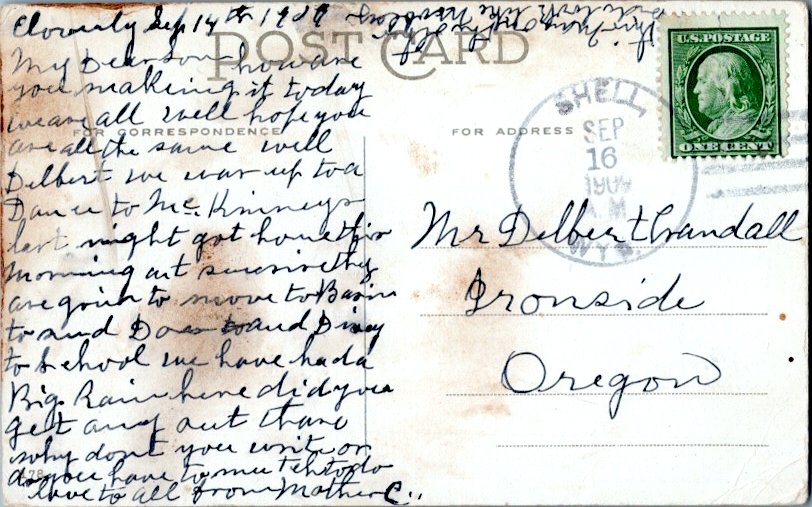 Cloverly Sep 14th 1909
POST CARD
My Dear Son how are
you making it today
we are all well hope you
are all the same well
Delbert we war up to a
Dance to Mc. Kinneys
last night got home this
morning at sunrise they
are goin to move to Basin
to send Dow and
to school we have had a
Big Rain here did you
get any out thare
why dont you write or
do you have to mutch to do
love to all from Mother C..
FOR CORRESPONDENCE
FOR ADDRESS
U.S. POSTAGE
ONE CENT
SHELL,
SEP
16
1909
A.M.
WYO.
Mr Delbert Crandall
Ironside
Oregon